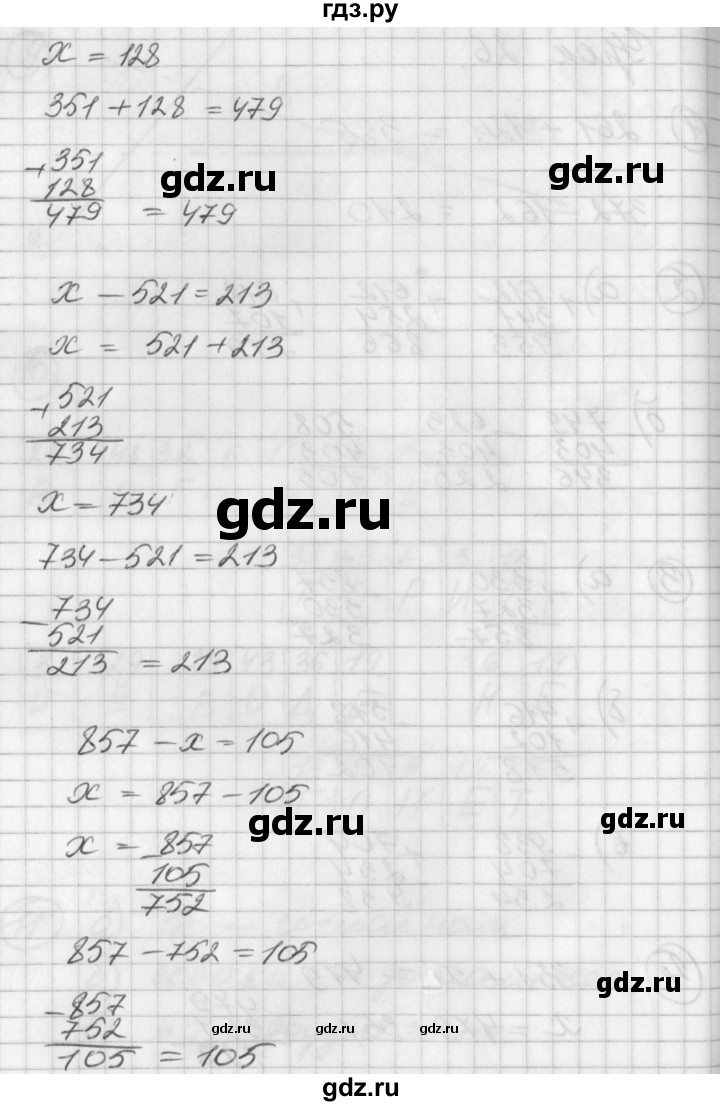 гдз.ру
x = 128
351 + 128 = 479
+ 351
128
479 = 479
gdz.ru
gdz.ru
x - 521 = 213
x = 521 + 213
+ 521
213
734
x = 734
gdz.ru
734 - 521 = 213
- 734
521
213 = 213
857 - x = 105
x = 857 - 105
gdz.ru
gdz.ru
x = - 857
105
752
857 - 752 = 105
gdz.ru
- 857
752
105 = 105
gdz.ru
gdz.ru
gdz.ru
gdz.ru